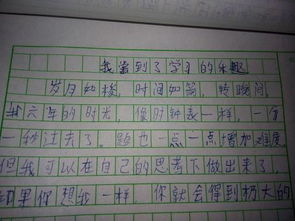 我尝到了学习的乐趣
岁月如梭，时间如箭，转瞬间
我六年的时光，像时钟表一样，一分
一秒过去了。题也一点一点增加难度
但我可以在自己的思考下做出来了，
如果你想我一样，你就会得到极大的